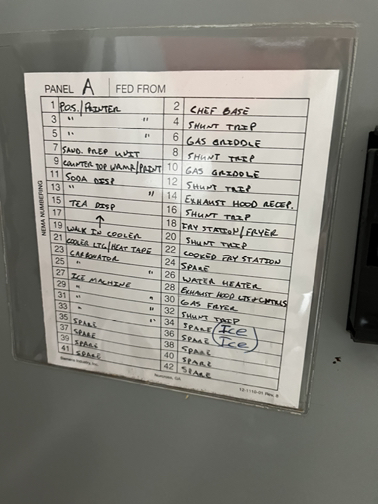 PANEL A FED FROM
NEMA NUMBERING
1 POS./PRINTER 2 CHEF BASE
3 " " 4 SHUNT TRIP
5 " " 6 GAS GRIDDLE
7 SAND. PREP UNIT 8 SHUNT TRIP
9 COUNTER TOP WRMR/PRINT 10 GAS GRIDDLE
11 SODA DISP 12 SHUNT TRIP
13 " " 14 EXHAUST HOOD RECEP.
15 TEA DISP 16 SHUNT TRIP
17 ↑ 18 FRY STATION/FRYER
19 WALK IN COOLER 20 SHUNT TRIP
21 COOLER LTG/HEAT TAPE 22 COOKED FRY STATION
23 CARBONATOR 24 SPARE
25 " " 26 WATER HEATER
27 ICE MACHINE 28 EXHAUST HOOD LTS+CNTRLS
29 " " 30 GAS FRYER
31 " " 32 SHUNT TRIP
33 " " 34 SPARE Ice
35 SPARE 36 SPARE Ice
37 SPARE 38 SPARE
39 SPARE 40 SPARE
41 SPARE 42 SPARE